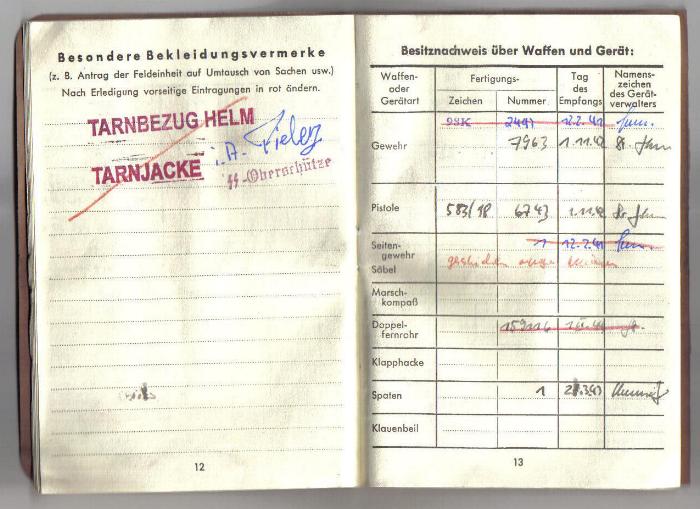 Besondere Bekleidungsvermerke
(z. B. Antrag der Feldeinheit auf Umtausch von Sachen usw.)
Nach Erledigung vorseitige Eintragungen in rot ändern.
TARNBEZUG HELM
i.A.
TARNJACKE
ϟϟ-Oberschütze
12
Besitznachweis über Waffen und Gerät:
Waffen- oder Gerätart Fertigungs- Zeichen Nummer Tag des Empfangs Namens- zeichen des Gerät- verwalters
98K 2441 12.2.41
Gewehr 7963 1.11.42
Pistole 583/18 6743 1.11.42
Seiten- gewehr 1 12.2.41
Säbel
Marsch- kompaß
Doppel- fernrohr 159116
Klapphacke
Spaten 1
Klauenbeil
13